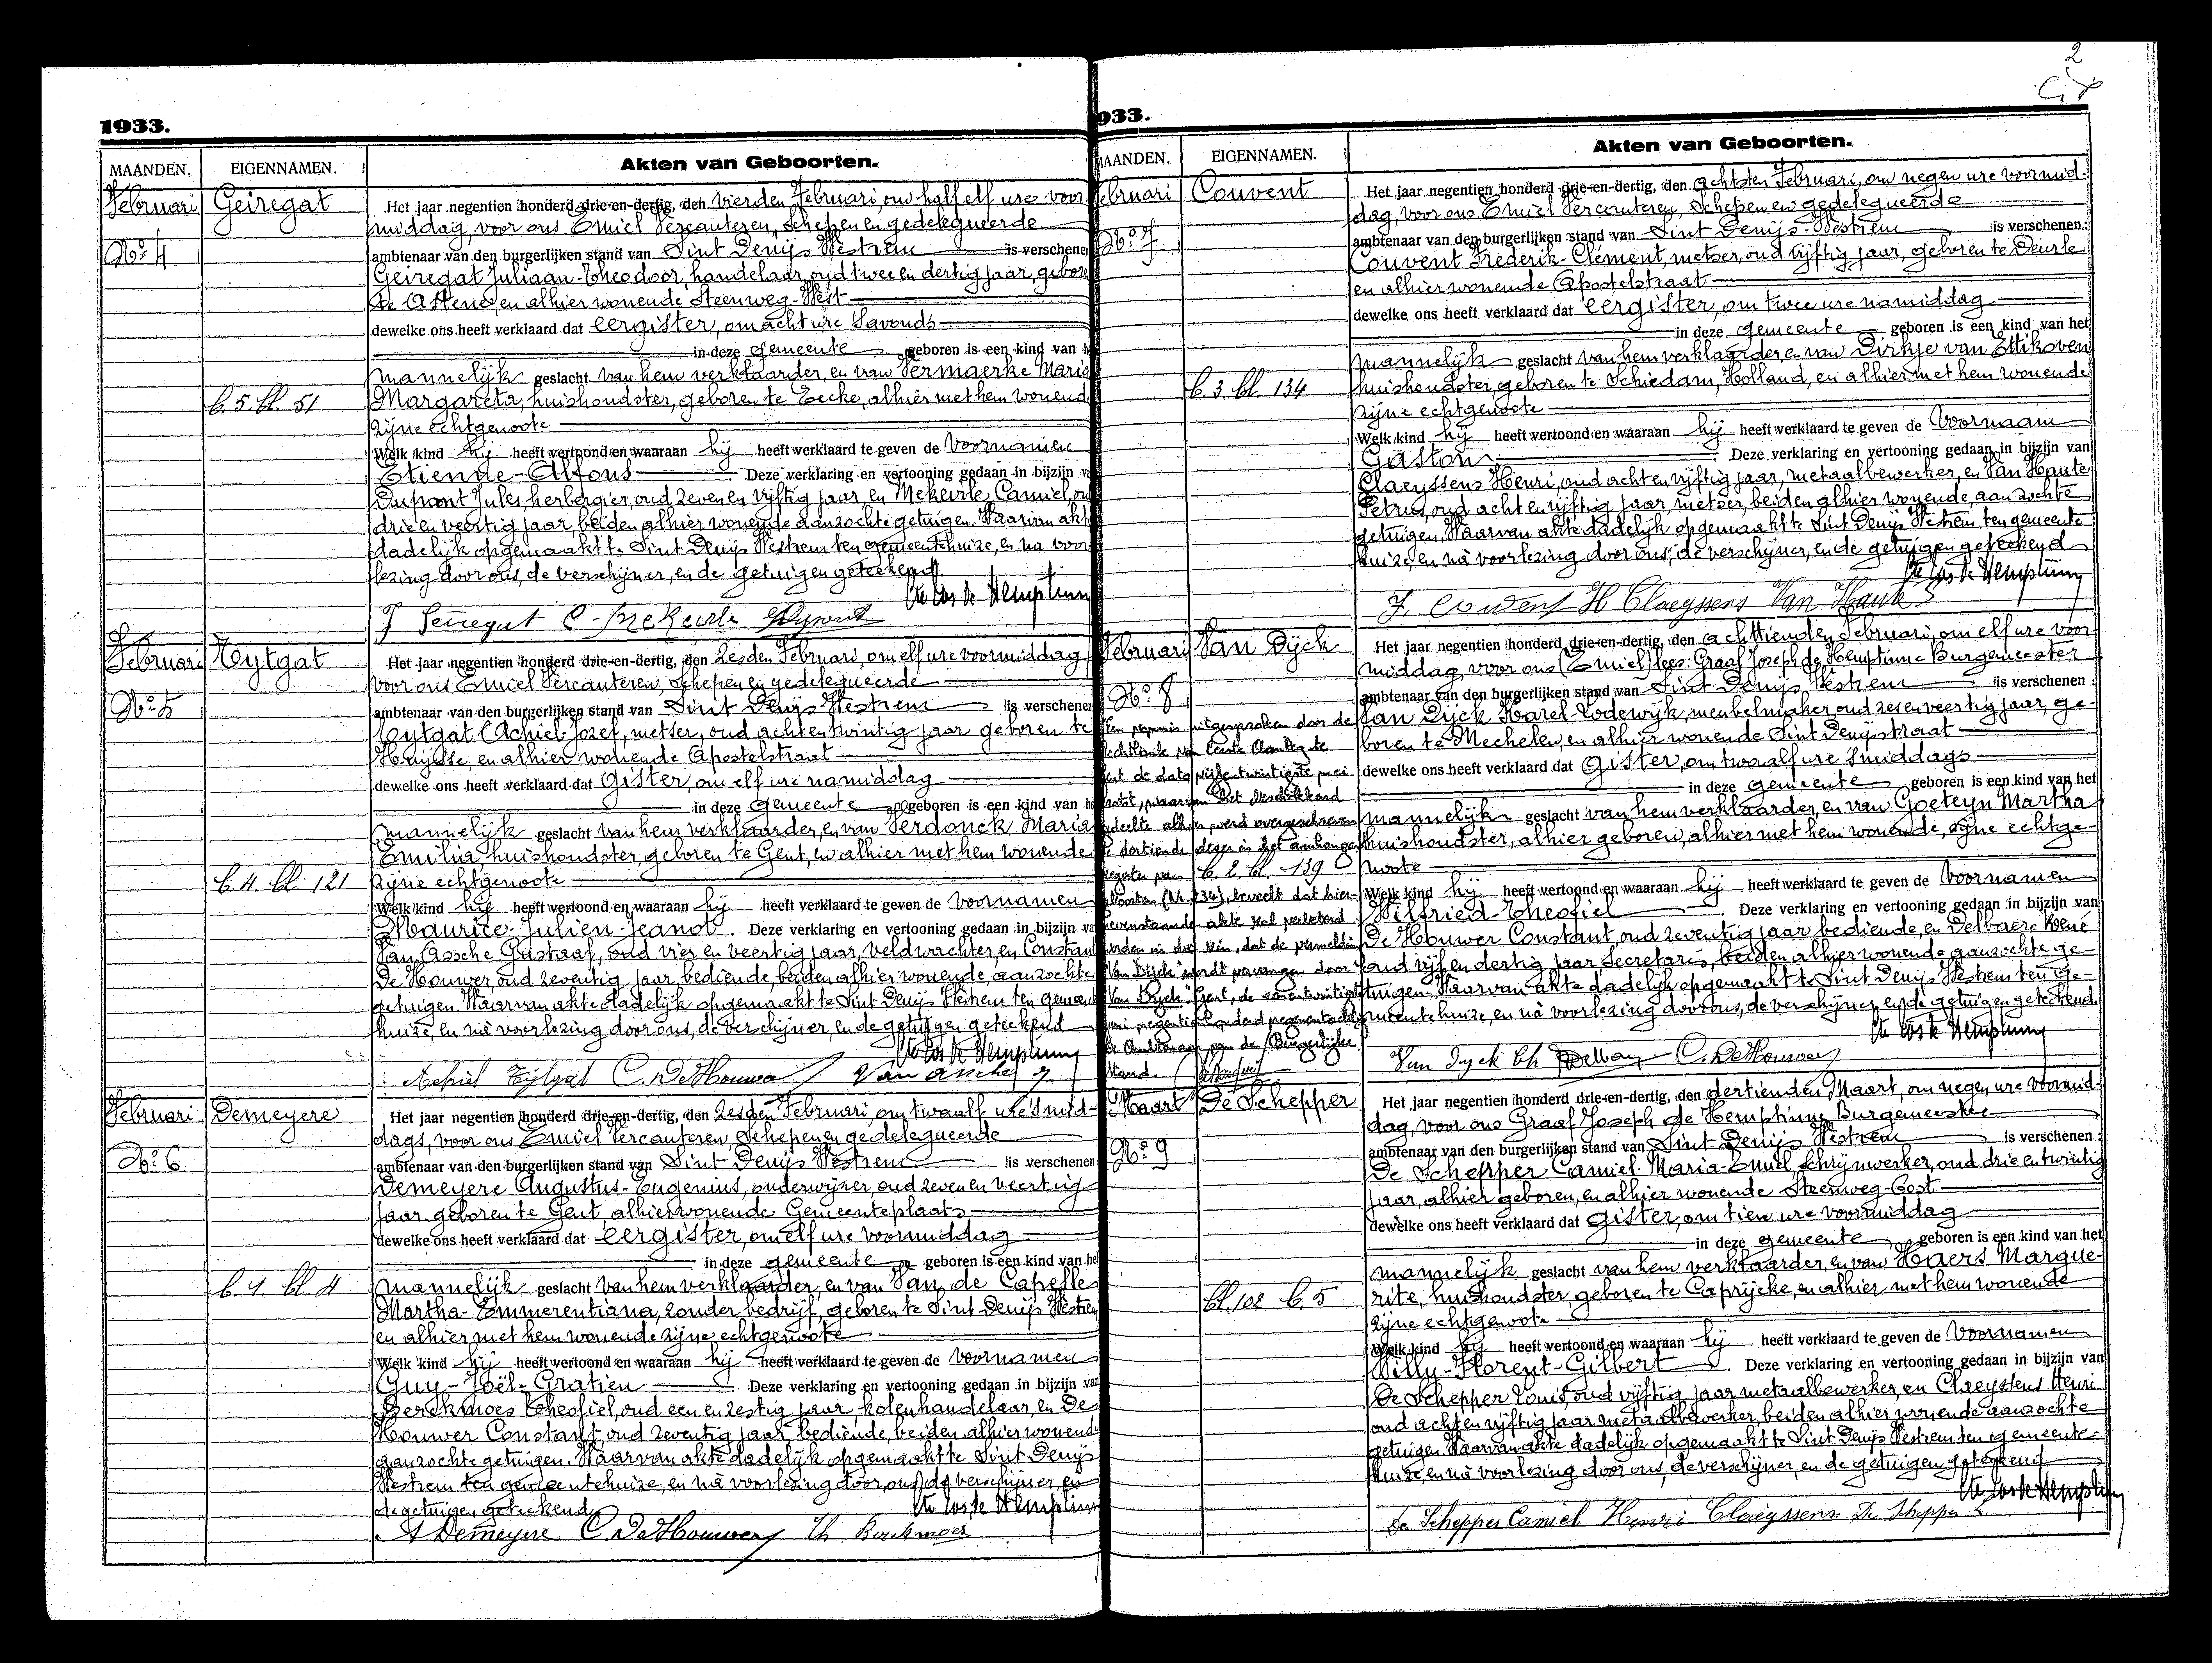 1933.
MAANDEN. EIGENNAMEN. Akten van Geboorten.
Februari Geiregat Het jaar negentien honderd drie-en-dertig, den vierden Februari, om half elf ure voor
middag, voor ons Emiel Vercauteren, Schepen en gedelegueerde
No. 4 ambtenaar van den burgerlijken stand van Sint Denijs Westrem is verschenen
Geiregat Juliaan-Theodoor, handelaar, oud twee en dertig jaar, geboren
te Astene, en alhier wonende Steenweg-West
dewelke ons heeft verklaard dat eergister, om acht ure Savonds
in deze gemeente geboren is een kind van h
mannelijk geslacht van hem verklaarder, en van Vermaerke Maria
b. 5. bl. 51 Margareta, huishoudster, geboren te Eecke, alhier met hem wonend
zijne echtgenoote
Welk kind hij heeft vertoond en waaraan hij heeft verklaard te geven de voornamen
Etienne-Alfons Deze verklaring en vertooning gedaan in bijzijn v
Dupont Jules, herbergier, oud zeven en vijftig jaar, en Mekeirle Camiel, ou
drie en veertig jaar, beiden alhier wonende aanzochte getuigen. Waarvan akt
dadelijk opgemaakt te Sint Denijs Westrem ten gemeentehuize, en na voor
lezing door ons, de verschijner, en de getuigen geteekend
Februari Tytgat Het jaar negentien honderd drie-en-dertig, den zesden Februari, om elf ure voormiddag
voor ons Emiel Vercauteren, Schepen en gedelegueerde
No. 5 ambtenaar van den burgerlijken stand van Sint Denijs Westrem is verschenen
Tytgat Achiel-Jozef, metser, oud acht en twintig jaar geboren te
Huijsse, en alhier wonende Apostelstraat
dewelke ons heeft verklaard dat gister, om elf ure namiddag
in deze gemeente geboren is een kind van he
mannelijk geslacht van hem verklaarder, en van Verdonck Maria
Emilia, huishoudster, geboren te Gent, en alhier met hem wonende
b. 4. bl. 121 zijne echtgenoote
Welk kind hij heeft vertoond en waaraan hij heeft verklaard te geven de voornamen
Maurice-Julien-Jeanot. Deze verklaring en vertooning gedaan in bijzijn va
Van Assche Gustaaf, oud vier en veertig jaar, veldwachter, en Constant
De Houwer, oud zeventig jaar, bediende, beiden alhier wonende, aanzochte
getuigen. Waarvan akte dadelijk opgemaakt te Sint Denijs Westrem ten gemeente
huize, en nà voorlezing door ons, de verschijner, en de getuigen geteekend
Achiel Tytgat C. De Houwer Van Assche G
Februari Demeyere Het jaar negentien honderd drie-en-dertig, den zesden Februari, om twaalf ure 's mid-
dags, voor ons Emiel Vercauteren, Schepen en gedelegueerde
No. 6 ambtenaar van den burgerlijken stand van Sint Denijs Westrem is verschenen
Demeyere Augustus-Eugenius, onderwijzer, oud zeven en veertig
jaar geboren te Gent, alhier wonende Gemeenteplaats
dewelke ons heeft verklaard dat eergister, om elf ure voormiddag
in deze gemeente geboren is een kind van he
b. 4. bl. 4 mannelijk geslacht van hem verklaarder, en van Van de Capelle
Martha-Emmerentiana, zonder bedrijf, geboren te Sint Denijs Westrem
en alhier met hem wonende zijne echtgenoote
Welk kind hij heeft vertoond en waaraan hij heeft verklaard te geven de voornamen
Guy-Joël-Gratien Deze verklaring en vertooning gedaan in bijzijn van
Berckmoes Theofiel, oud een en zestig jaar, kolenhandelaar, en De
Houwer Constant, oud zeventig jaar, bediende, beiden alhier wonende
aanzochte getuigen. Waarvan akte dadelijk opgemaakt te Sint Denijs
Westrem ten gemeentehuize, en nà voorlezing door ons, de verschijner, en
de getuigen geteekend
A Demeyere C. De Houwer Th Berckmoes
2
933.
MAANDEN. EIGENNAMEN. Akten van Geboorten.
Februari Couvent Het jaar negentien honderd drie-en-dertig, den achtsten Februari, om negen ure voormid-
dag, voor ons Emiel Vercauteren, Schepen en gedelegueerde
No. 7 ambtenaar van den burgerlijken stand van Sint Denijs-Westrem is verschenen:
Couvent Frederik-Clément, metser, oud vijftig jaar, geboren te Deurle
en alhier wonende Apostelstraat
dewelke ons heeft verklaard dat eergister, om twee ure namiddag
in deze gemeente geboren is een kind van het
mannelijk geslacht van hem verklaarder, en van Dirkje van Ettikoven
b. 3 bl. 134 huishoudster, geboren te Schiedam, Holland, en alhier met hem wonende
zijne echtgenoote
Welk kind hij heeft vertoond en waaraan hij heeft verklaard te geven de voornaam
Gaston Deze verklaring en vertooning gedaan in bijzijn van
Claeyssens Henri, oud acht en vijftig jaar, metaalbewerker, en Van Haute
Petrus, oud acht en vijftig jaar, metser, beiden alhier wonende, aanzochte
getuigen. Waarvan akte dadelijk opgemaakt te Sint Denijs Westrem ten gemeente
huize, en nà voorlezing door ons, de verschijner, en de getuigen geteekend
F. Couvent H Claeyssens Van Haute
Februari Van Dijck Het jaar negentien honderd drie-en-dertig, den achttienden Februari, om elf ure voor-
middag, voor ons (Emiel) lees: Graaf Joseph de Hemptinne Burgemeester
No. 8 ambtenaar van den burgerlijken stand van Sint Denijs Westrem is verschenen:
Van Dijck Karel-Lodewijk, meubelmaker, oud zes en veertig jaar, ge-
boren te Mechelen, en alhier wonende Sint Denijsstraat
dewelke ons heeft verklaard dat Gister, om twaalf ure 's middags
in deze gemeente geboren is een kind van het
mannelijk geslacht van hem verklaarder, en van Goeteyn Martha
huishoudster, alhier geboren, alhier met hem wonende, zijne echtge-
b. 2. bl. 139 noote
Welk kind hij heeft vertoond en waaraan hij heeft verklaard te geven de voornamen
Wilfried-Theofiel Deze verklaring en vertooning gedaan in bijzijn van
De Houwer Constant, oud zeventig jaar bediende, en Delbaere René
oud vijf en dertig jaar Secretaris, beiden alhier wonende aanzochte ge-
tuigen. Waarvan akte dadelijk opgemaakt te Sint Denijs Westrem ten ge-
meentehuize, en nà voorlezing door ons, de verschijner, en de getuigen geteekend.
Van Dyck Ch C. De Houwer
Een vonnis uitgesproken door de
Rechtbank van Eerste Aanleg te
Gent de dato vijfentwintigste mei
laatst, waarvan het beschikkend
gedeelte alhier werd overgeschreven
de dertiende dezer in het aanhangen
register van
geboorten (Nr. 234), beveelt dat hier-
nevenstaande akte zal verbeterd
worden in die zin, dat de vermelding
"Van Dijck" wordt vervangen door
"Van Dyck". Gent, de eenentwintigste
juni negentienhonderd negenentachtig
De Ambtenaar van de Burgerlijke
Stand.
Maart De Schepper Het jaar negentien honderd drie-en-dertig, den dertienden Maart, om negen ure voormid-
dag, voor ons Graaf Joseph de Hemptinne Burgemeester
No. 9 ambtenaar van den burgerlijken stand van Sint Denijs Westrem is verschenen:
De Schepper Camiel-Maria-Emiel Schrijnwerker, oud drie en twintig
jaar, alhier geboren, en alhier wonende Steenweg-Oost
dewelke ons heeft verklaard dat gister, om tien ure voormiddag
in deze gemeente geboren is een kind van het
mannelijk geslacht van hem verklaarder, en van Haers Margue-
bl. 102 b. 5 rite, huishoudster geboren te Caprijcke, en alhier met hem wonende
zijne echtgenoote
Welk kind hij heeft vertoond en waaraan hij heeft verklaard te geven de voornamen
Willy-Florent-Gilbert Deze verklaring en vertooning gedaan in bijzijn van
De Schepper Louis, oud vijftig jaar metaalbewerker, en Claeyssens Henri
oud acht en vijftig jaar metaalbewerker, beiden alhier wonende aanzochte
getuigen. Waarvan akte dadelijk opgemaakt te Sint Denijs Westrem ten gemeente-
huize, en nà voorlezing door ons, de verschijner, en de getuigen geteekend
De Schepper Camiel Henri Claeyssens De Schepper L